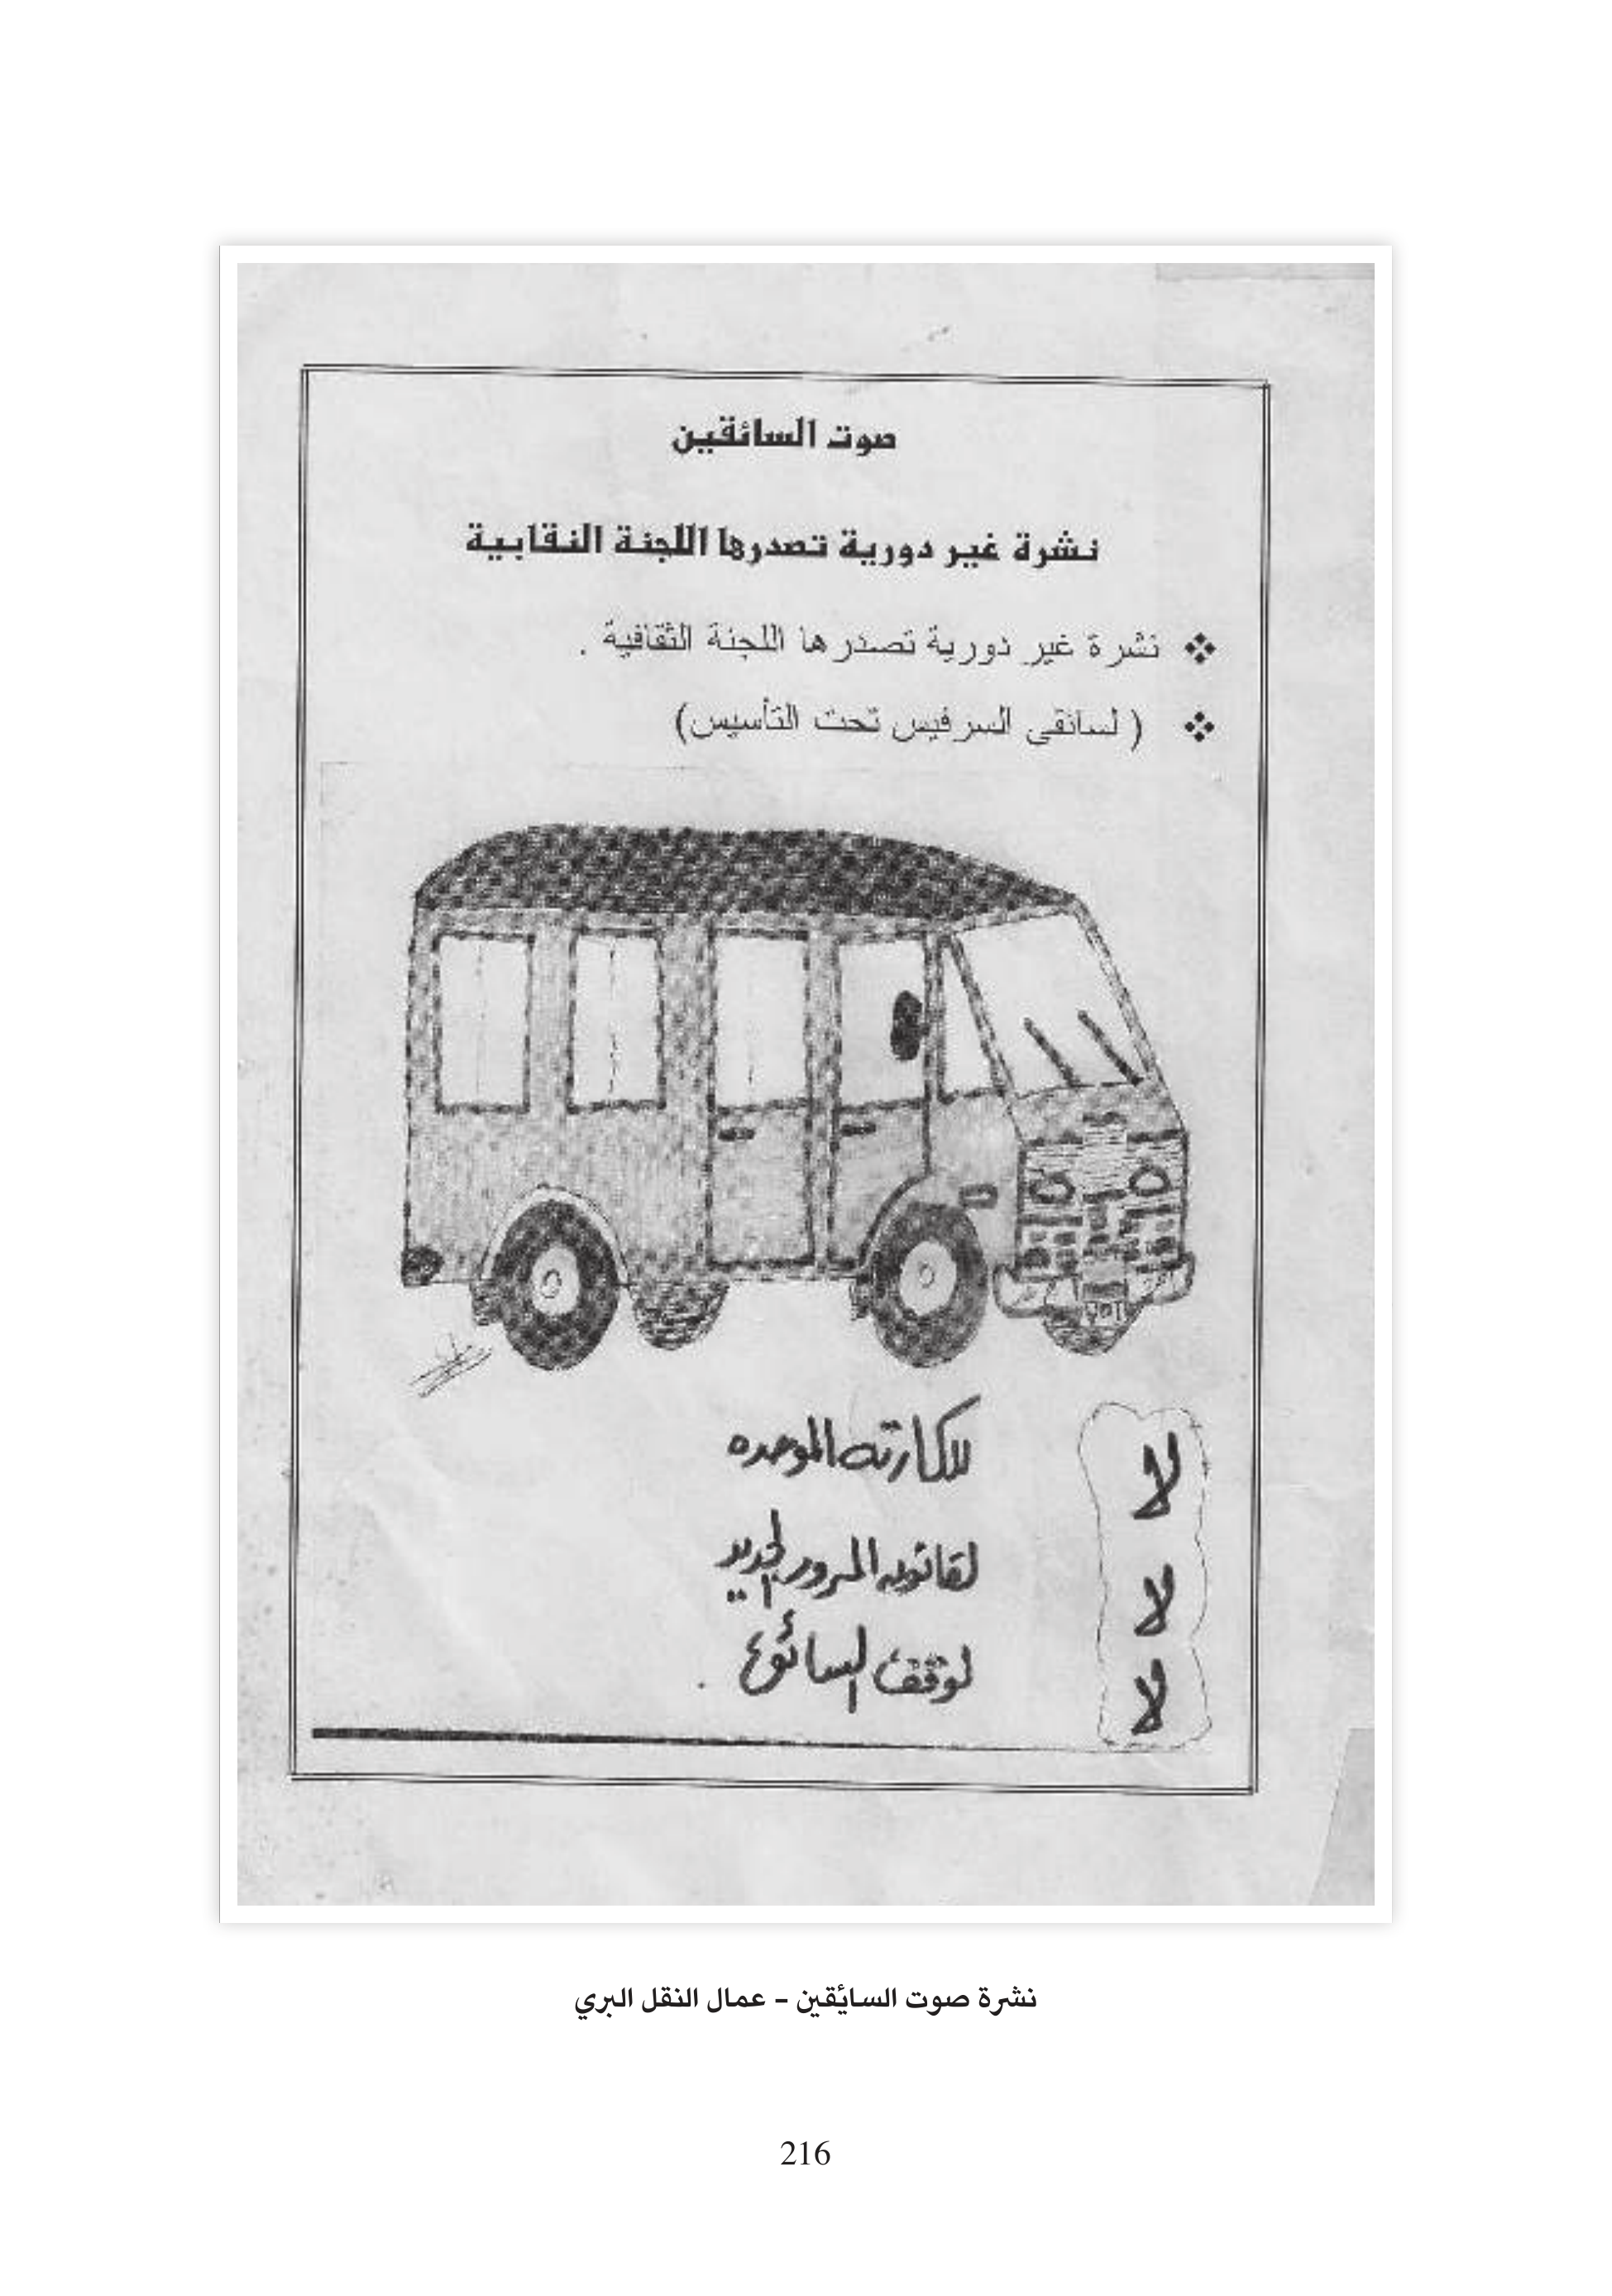 صوت السائقين
نشرة غير دورية تصدرها اللجنة النقابية
❖ نشرة غير دورية تصدرها اللجنة الثقافية .
❖ ( لسائقى السرفيس تحت التأسيس)
لا للكارته الموحده
لا لقانون المرور الجديد
لا لوقف السائق .
نشرة صوت السائقين – عمال النقل البري
216